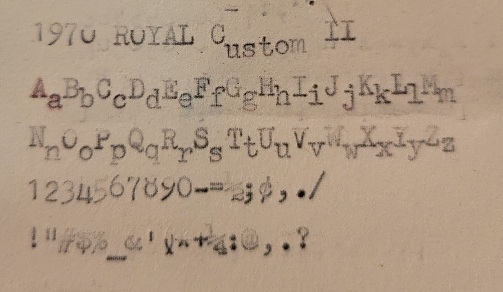 1970 ROYAL Custom II
AaBbCcDdEeFfGgHhIiJjKkLlMm
NnOoPpQqRrSsTtUuVvWwXxYyZz
1234567890-=½;¢,./
!"#$%_&'(*+¼:@,.?